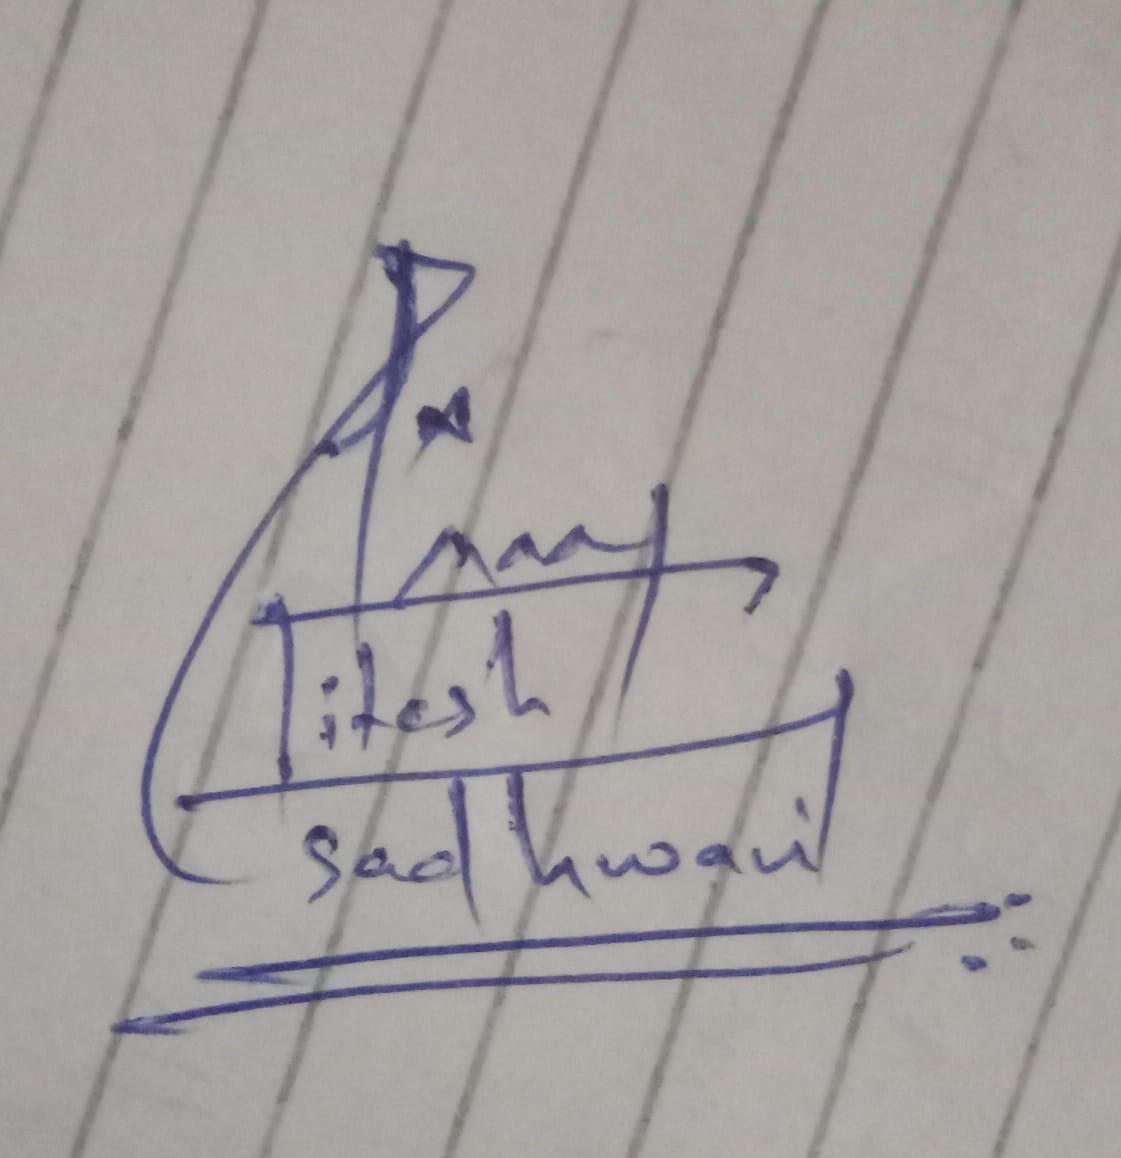 itesh
sadhwani